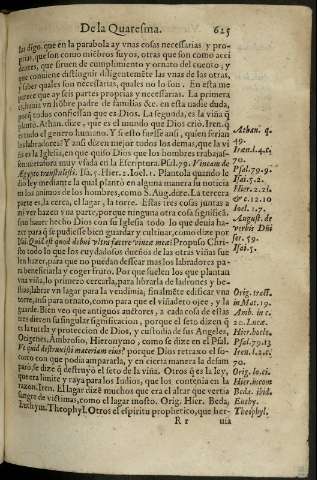 De la Quaresma. 625
las digo, que en la parabola ay vnas cosas necessarias y pro-
prias, que son como miẽbros suyos, otras que son como acci
dentes, que siruen de cumplimiento y ornato del cuento, y
que conuiene distinguir diligentemẽte las vnas de las otras,
y saber quales son necessarias, quales no lo son. En esta me
parece que ay seis partes proprias y necessarias. La primera
hõbre padre de familias &c. en esta nadie duda,
porq̃ todos confiessan que es Dios. La segunda, es la viña q̃
planto. Athan. dize, que es el mundo que Dios crio. Iren. q̃
es todo el genero humano. Y si esto fuesse ansi, quien serian
los labradores? Y ansi dizen mejor todos los demas, que la vi
ña es la Iglesia, en que quiso Dios que los hombres trabajas-
sen: metafora muy vsada en la Escriptura. Psal. 79. Vineam de
Ægypto transtulisti. Isai. 5. Hier. 2. Ioel. 1. Plantola quando le
dio ley mediante la qual plantò en alguna manera su noticia
en los animos de los hombres, como S. Aug. dize. La tercera
parte es, la cerca, el lagar, la torre. Estas tres cosas juntas a
mi ver hazen vna parte, porque ninguna otra cosa significã,
sino hauer hecho Dios con su Iglesia todo lo que deuia ha-
zer para q̃ se pudiesse bien guardar y cultiuar, como dize por
Isai. Quid est quod debui vltra facere vineæ meæ? Propuso Chri-
sto todo lo que los cuydadosos dueños de las otras viñas sue
len hazer, para que no puedan dessear mas los labradores pa-
ra beneficiarla y coger fruto. Por que suelen los que plantan
vna viña, lo primero cercarla, para librarla de ladrones y be-
stias, labrar vn lagar para la vendimia, finalmẽte edificar vna
torre, ansi para ornato, como para que el viñadero ojee, y la
guarde. Bien veo que antiguos auctores, a cada cosa de estas
tres dieron su singular significacion, porque el seto dizen q̃
es la tutela y proteccion de Dios, y custodia de sus Angeles,
Origenes, Ambrosio, Hieronymo, como se dize en el Psal.
Vt quid destruxisti maceriam eius? porque Dios retraxo el so-
corro con que podia ampararla, y en cierta manera la desam
parò, se dize q̃ destruyò el seto de la viña. Otros q̃ es la ley,
que era limite y raya para los Iudios, que los contenia en la
razon. Iren. El lagar dizẽ muchos que era el altar que vertia
sangre de victimas, como el lagar mosto. Orig. Hier. Beda,
Euthym. Theophyl. Otros el espiritu prophetico, que her-
R r uia
Athan. q.
49.
Iren. l. 4. c.
70.
Psal. 79. 9.
Isai. 5. 2.
Hier. 2. 21.
& c. 12. 10
Ioel. 1. 7.
August. de
verbis Dñi
ser. 59.
Isai. 5.
Orig. tract.
in Mat. 19.
Amb. in c.
20. Lucæ.
Hier. hoc lo.
Psal. 79. 13
Iren. l. 4. c.
70.
Orig. lo. ci.
Hier. in com
Beda. ibid.
Euthy.
Theophyl.